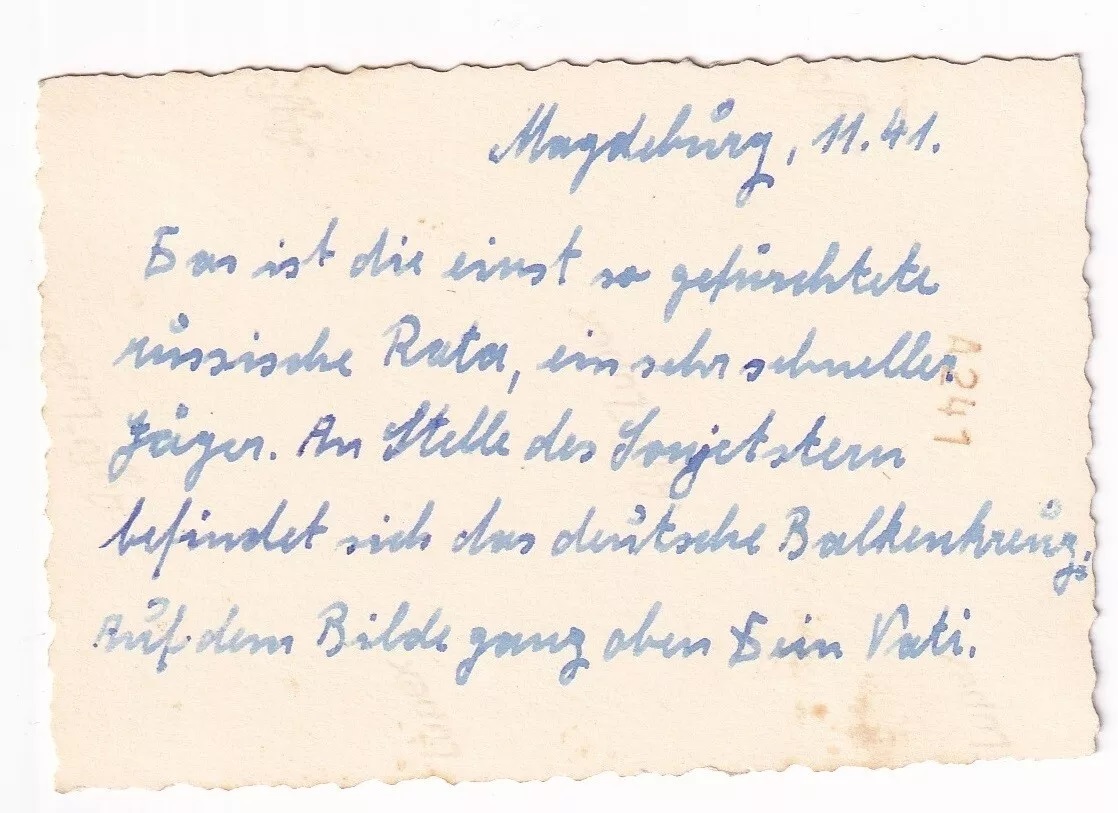 Magdeburg, 11.41.
Das ist die einst so gefürchtete
russische Rata, ein sehr schneller
Jäger. An Stelle des Sowjetstern
befindet sich das deutsche Balkenkreuz.
Auf dem Bilde ganz oben Dein Vati.
A241